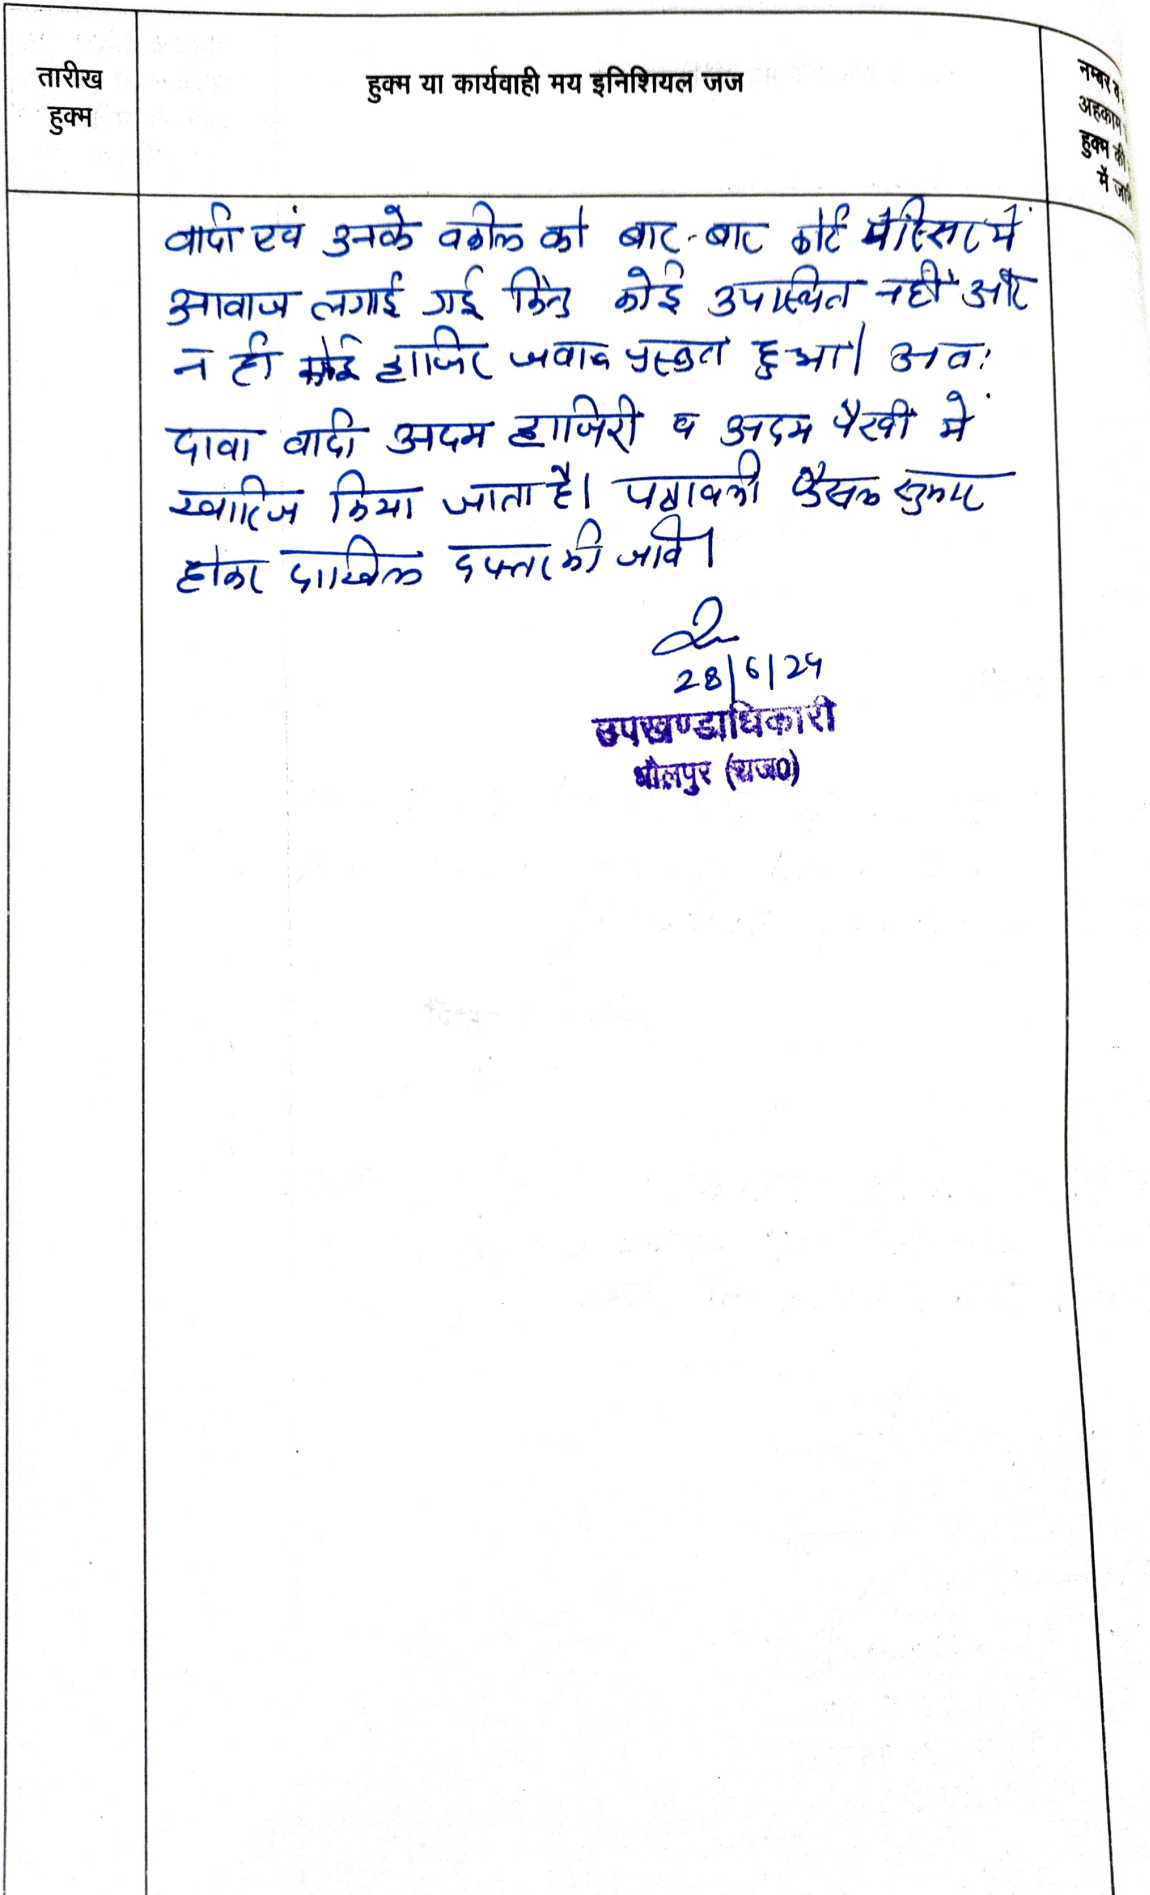 तारीख
हुक्म
हुक्म या कार्यवाही मय इनिशियल जज
नम्बर व
अहकाम
हुक्म की
में
वादी एवं उनके वकील को बार-बार कोर्ट परिसर में
आवाज लगाई गई किन्तु कोई उपस्थित नहीं और
न ही कोई हाजिर जवाब प्रस्तुत हुआ। अतः
दावा वादी अदम हाजिरी व अदम पैरवी में
खारिज किया जाता है। पत्रावली फैसल शुमार
होकर दाखिल दफ्तर की जावे।
28/6/24
उपखण्डाधिकारी
धौलपुर (राज0)